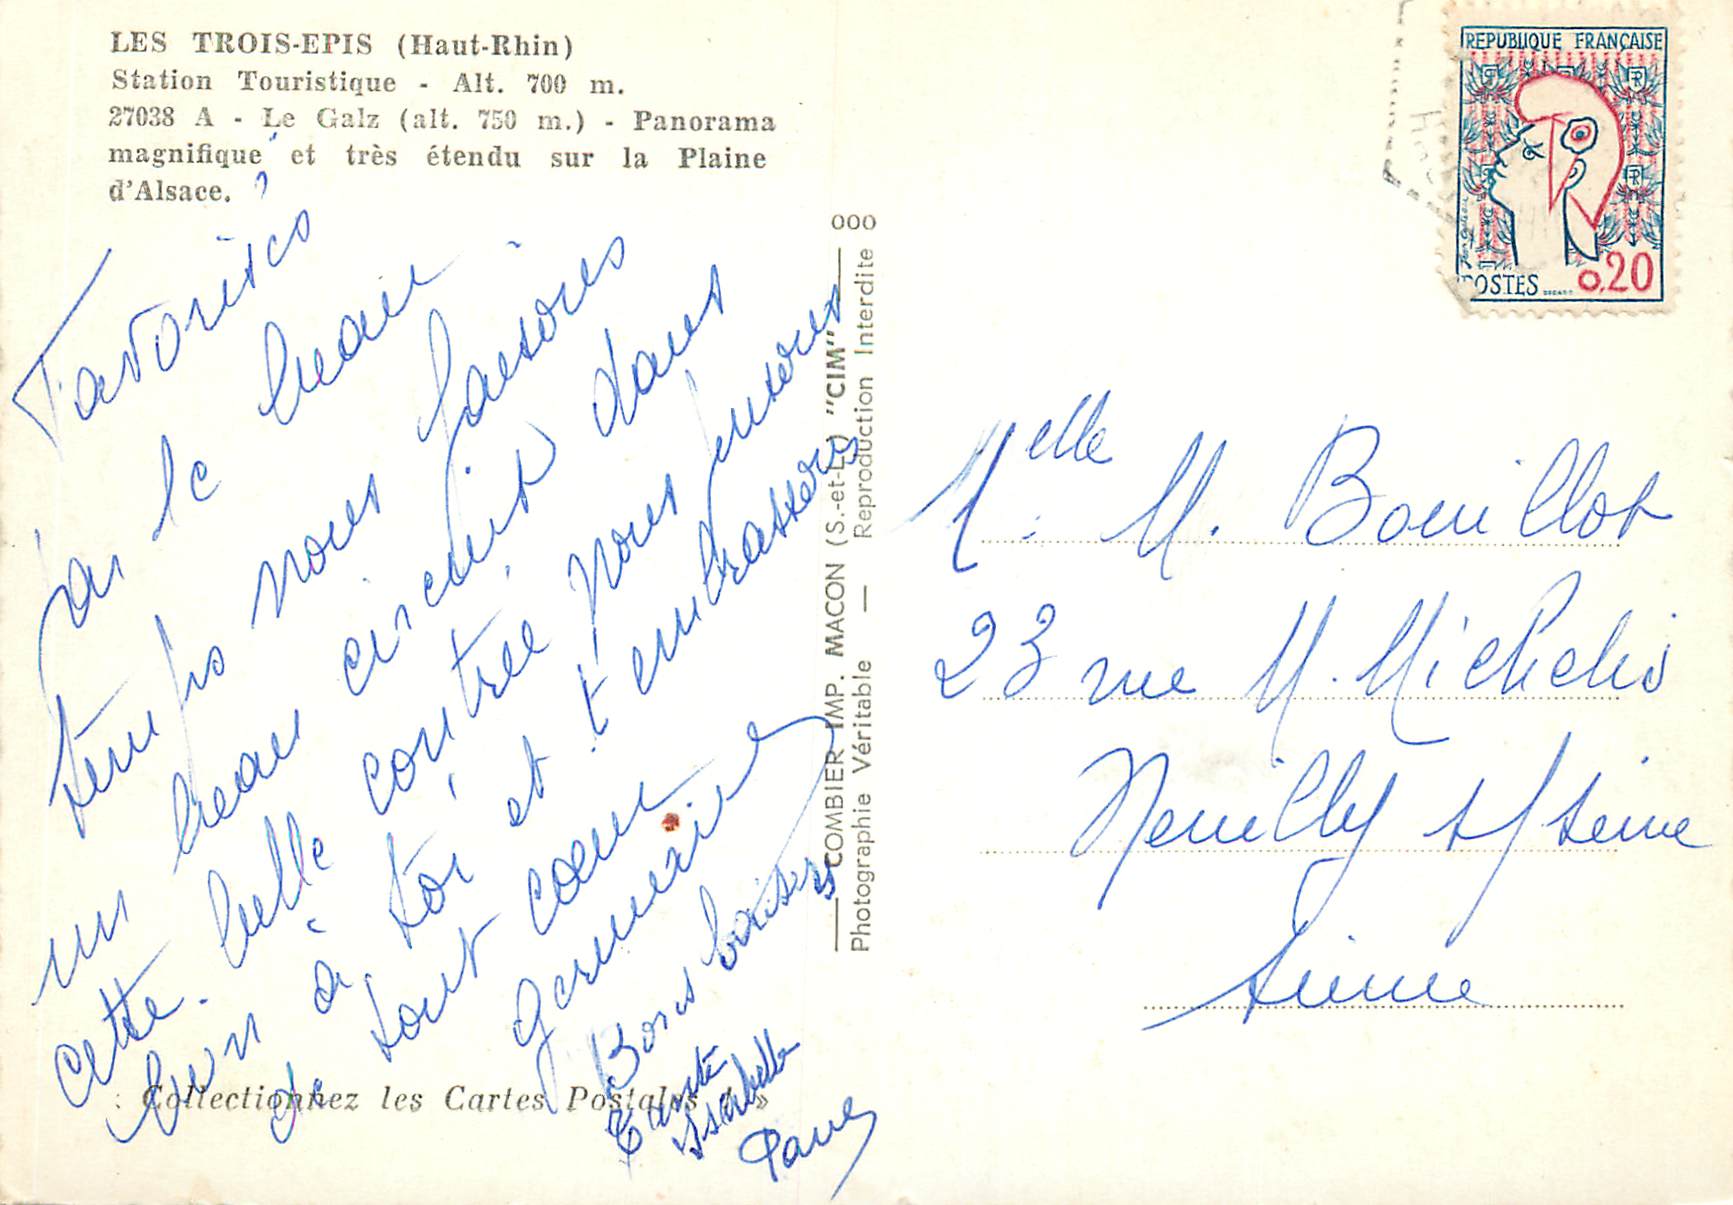 LES TROIS-EPIS (Haut-Rhin)
Station Touristique - Alt. 700 m.
27038 A - Le Galz (alt. 750 m.) - Panorama
magnifique et très étendu sur la Plaine
d'Alsace.
Favorisés
par le beau
temps nous faisons
un beau circuit dans
cette belle contrée. Nous pensons
bien à toi et t'embrassons
de tout cœur
Germaine
Bons baisers
Tante
Isabelle
: Collectionnez les Cartes Postales »
000
COMBIER IMP. MACON (S.-et-L.) "CIM"
Photographie Véritable — Reproduction Interdite
REPUBLIQUE FRANÇAISE
POSTES 0,20
Melle M. Bouillot
23 rue M. Michelis
Neuilly s/ Seine
Seine